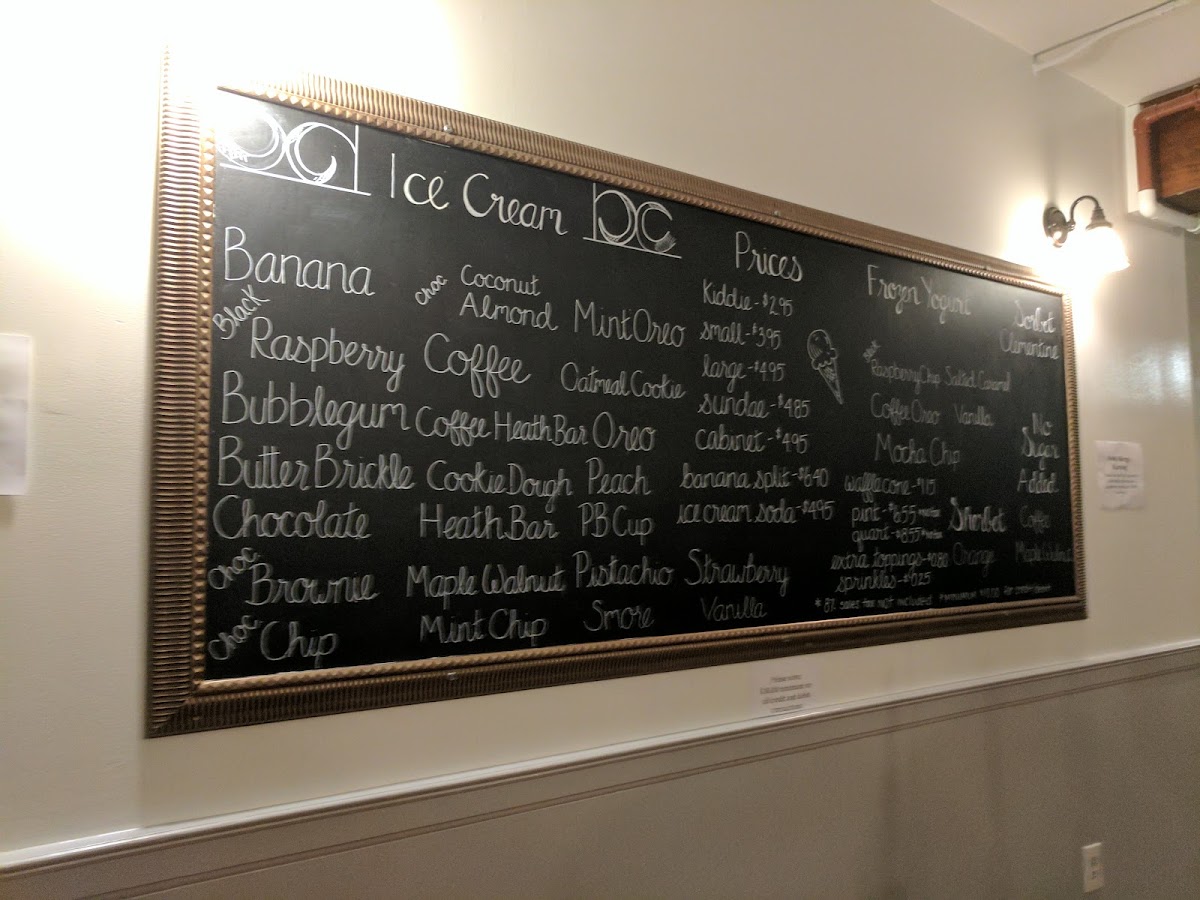 Ice Cream
Banana
Black
Raspberry
Bubblegum
Butter Brickle
Chocolate
Choc.
Brownie
Choc.
Chip
Choc
Coconut
Almond
Coffee
Coffee Heath Bar
Cookie Dough
Heath Bar
Maple Walnut
Mint Chip
Mint Oreo
Oatmeal Cookie
Oreo
Peach
PB Cup
Pistachio
Smore
Strawberry
Vanilla
Prices
Kiddie - $2.95
small - $3.95
large - $4.95
sundae - $4.85
cabinet - $4.95
banana split - $6.40
ice cream soda - $4.95
Frozen Yogurt
Raspberry Chip
Salted Caramel
Coffee Oreo
Vanilla
Mocha Chip
waffle cone -
pint - $6.55
quart - $8.55
extra toppings - $0.80
sprinkles - $0.25
Sorbet
Clementine
Sherbet
Orange
No
Sugar
Added
Coffee
Maple Walnut
* 8% sales tax not included